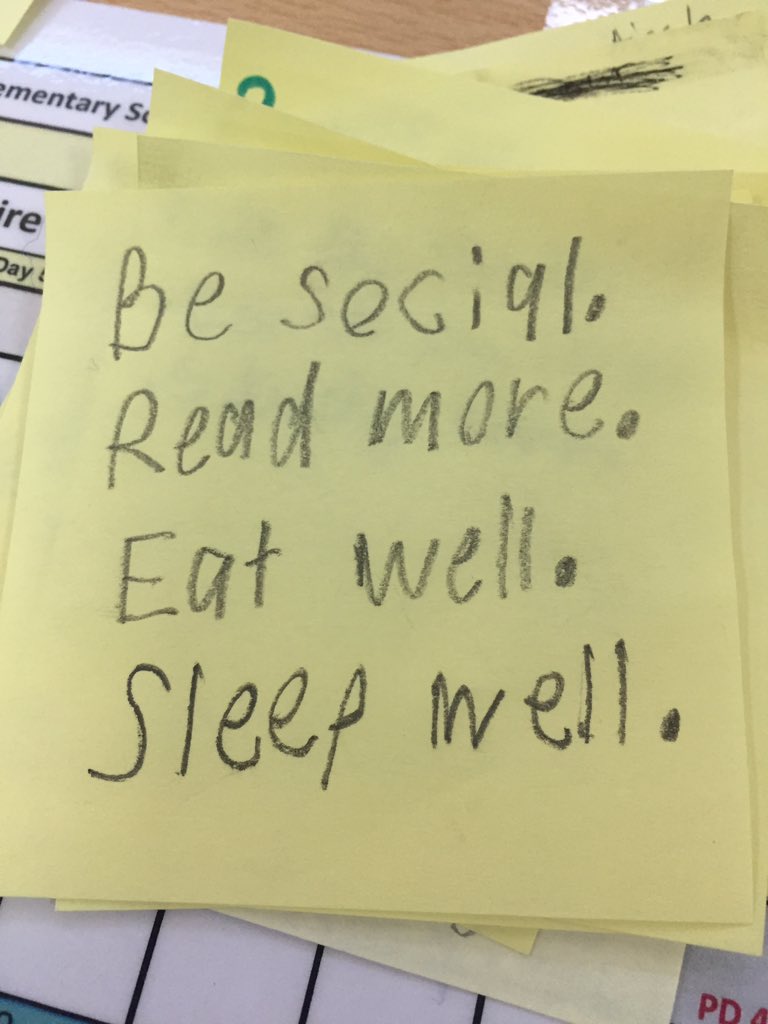 ementary Sc
?
ire
Day
Be social.
Read more.
Eat well.
Sleep well.
PD 4